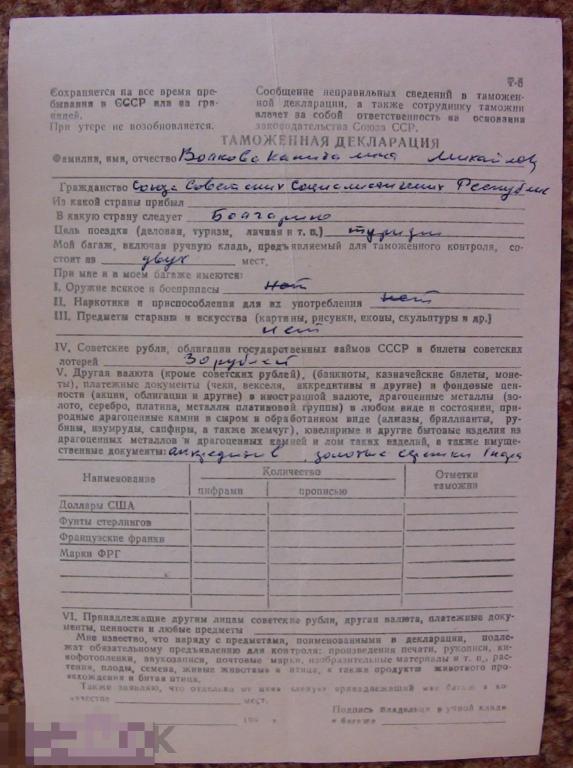 Т-6
Сохраняется на все время пре-
бывания в СССР или за гра-
ницей.
При утере не возобновляется.
Сообщение неправильных сведений в таможен-
ной декларации, а также сотруднику таможни
влечет за собой ответственность на основании
законодательства Союза ССР.
ТАМОЖЕННАЯ ДЕКЛАРАЦИЯ
Фамилия, имя, отчество Волкова Михайлов
Гражданство Союза Советских Социалистических Республик
Из какой страны прибыл
В какую страну следует Болгарию
Цель поездки (деловая, туризм, личная и т. п.) туризм
Мой багаж, включая ручную кладь, предъявляемый для таможенного контроля, со-
стоит из двух мест.
При мне и в моем багаже имеются:
I. Оружие всякое и боеприпасы нет
II. Наркотики и приспособления для их употребления нет
III. Предметы старины и искусства (картины, рисунки, иконы, скульптуры и др.)
нет
IV. Советские рубли, облигации государственных займов СССР и билеты советских
лотерей 30 рублей
V. Другая валюта (кроме советских рублей), (банкноты, казначейские билеты, моне-
ты), платежные документы (чеки, векселя, аккредитивы и другие) и фондовые цен-
ности (акции, облигации и другие) в иностранной валюте, драгоценные металлы (зо-
лото, серебро, платина, металлы платиновой группы) в любом виде и состоянии, при-
родные драгоценные камни в сыром и обработанном виде (алмазы, бриллианты, ру-
бины, изумруды, сапфиры, а также жемчуг), ювелирные и другие бытовые изделия из
драгоценных металлов и драгоценных камней и лом таких изделий, а также имуще-
ственные документы: золотые сережки 1 пара
Наименование
Количество
Отметки
таможни
цифрами
прописью
Доллары США
Фунты стерлингов
Французские франки
Марки ФРГ
VI. Принадлежащие другим лицам советские рубли, другая валюта, платежные доку-
менты, ценности и любые предметы
Мне известно, что наряду с предметами, поименованными в декларации, подле-
жат обязательному предъявлению для контроля: произведения печати, рукописи, ки-
нофотопленки, звукозаписи, почтовые марки, изобразительные материалы и т. п., рас-
тения, плоды, семена, живые животные и птица, а также продукты животного про-
исхождения и битая птица.
Также заявляю, что отдельно от меня следует принадлежащий мне багаж в ко-
личестве мест.
Подпись владельца ручной клади
и багажа